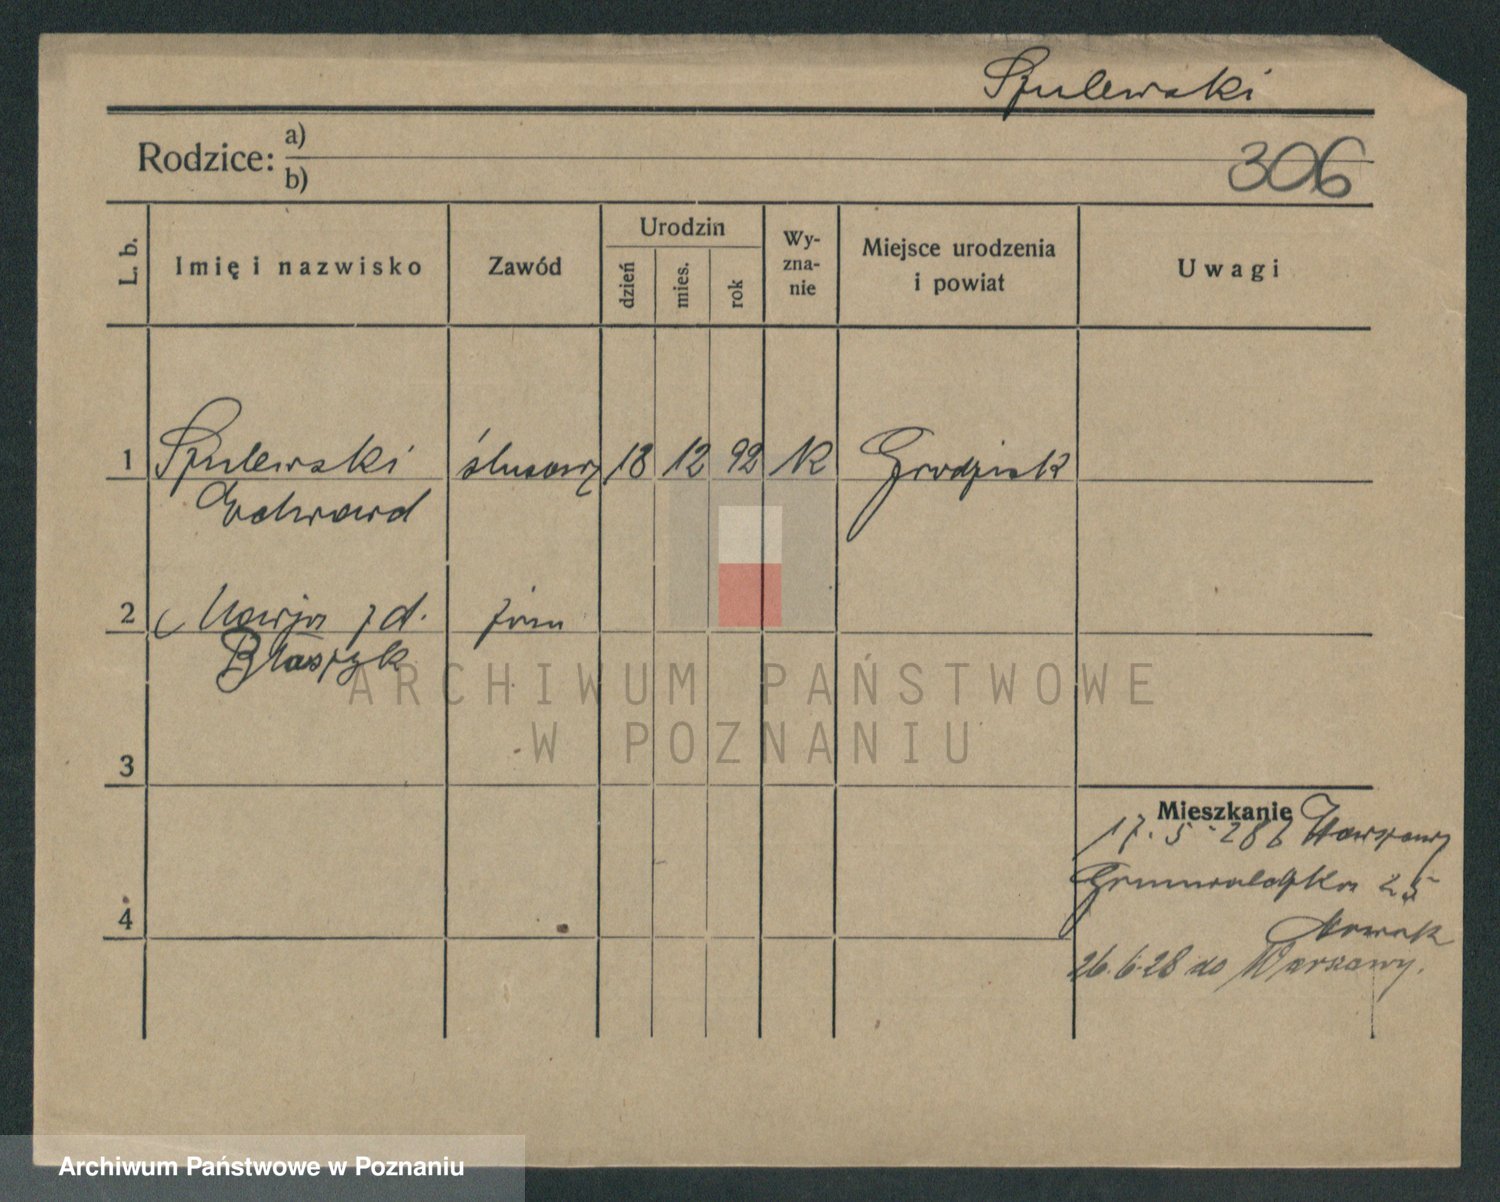 Szulewski
Rodzice: a)
b)
306
L. b.
Imię i nazwisko
Zawód
Urodzin
dzień
mies.
rok
Wy-
zna-
nie
Miejsce urodzenia
i powiat
Uwagi
1 Szulewski ślusarz 18 12 92 K Grodzisk
Edward
2 Marja z d. żona
Błaszyk
3
4
Mieszkanie
17. 5 - 28 z Warszawy
Grunwaldzka 25
Nowak
26.6.28 do Warszawy.
ARCHIWUM PAŃSTWOWE
W POZNANIU
Archiwum Państwowe w Poznaniu